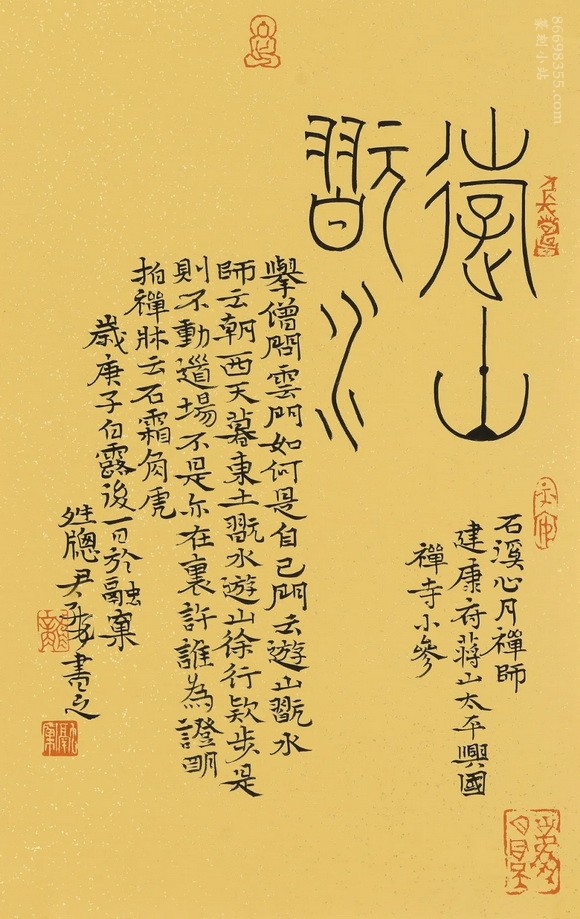 86698355.com
遊山
翫水
石溪心月禪師
建康府蔣山太平興國
禪寺小參
擧僧問雲門如何是自己門云遊山翫水
師云朝西天暮東土翫水遊山徐行欵步是
則不動道場不是亦在裏許誰為證明
拍禪牀云石霜角虎
歲庚子白露後一日於融窠
牕尹書之